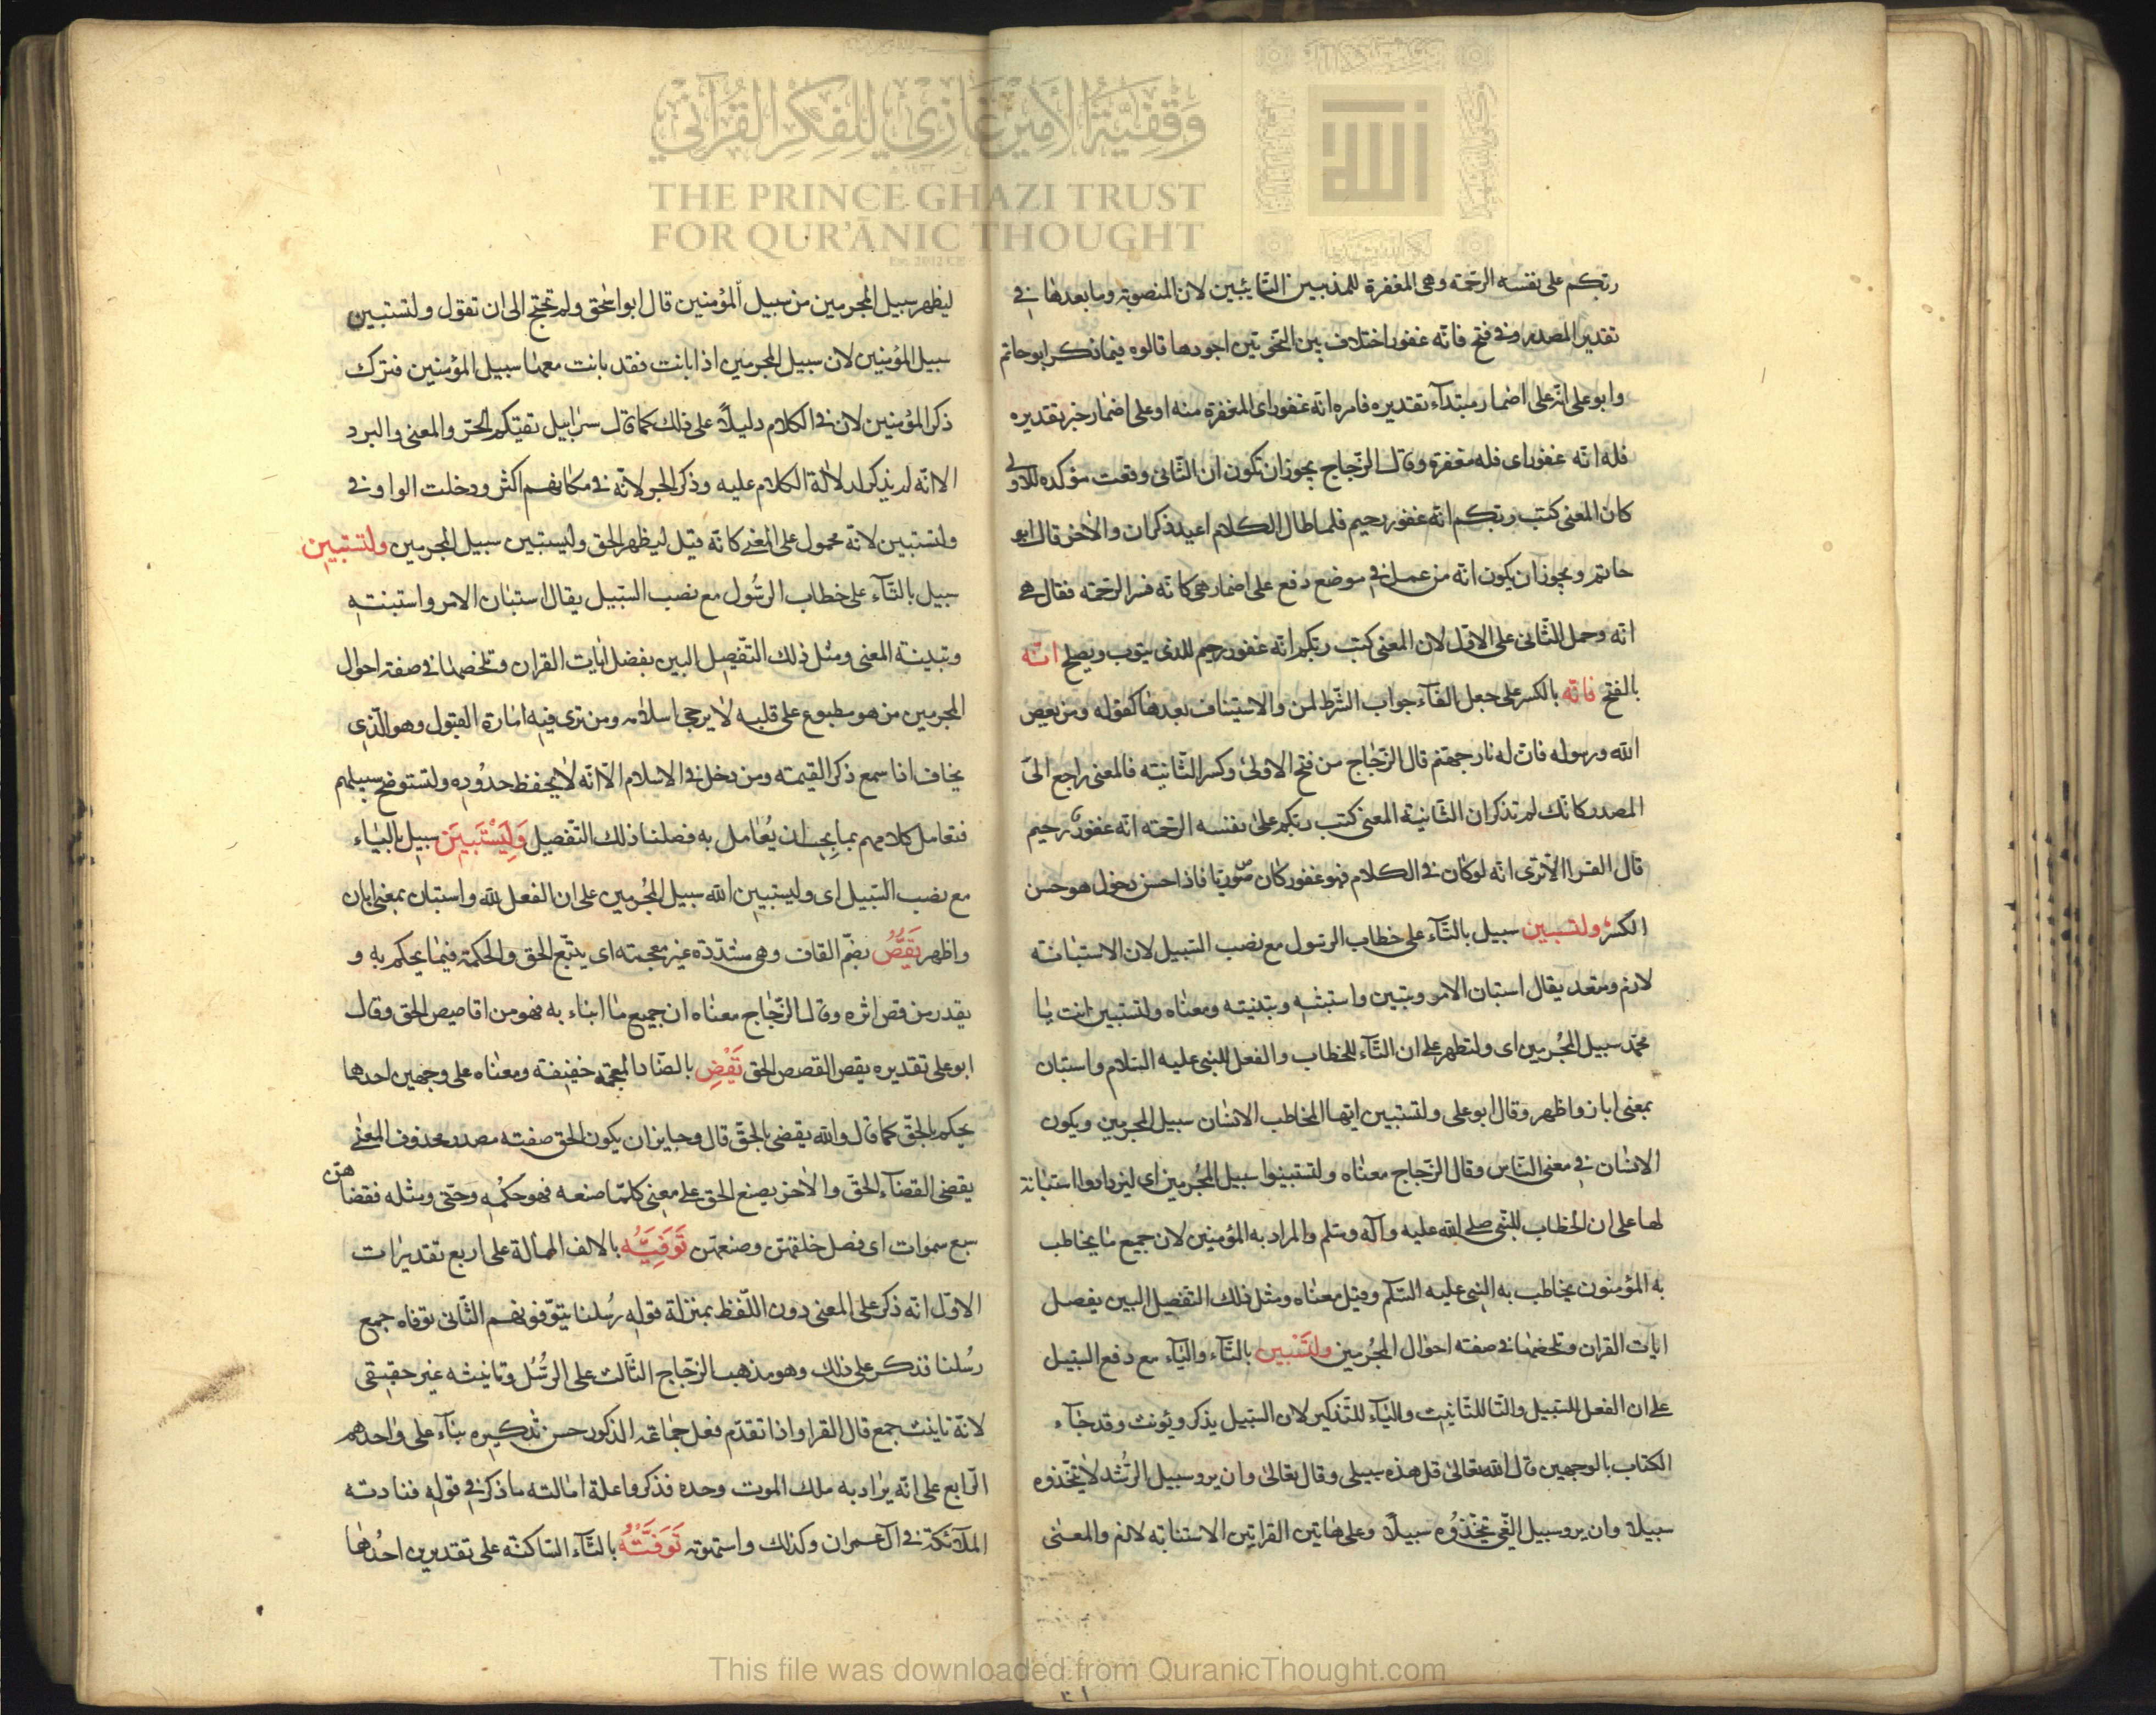 وَقْفِيَّةُ الأَمِيرِ غَازِي لِلْفِكْرِ القُرْآنِي
THE PRINCE GHAZI TRUST
FOR QUR'ĀNIC THOUGHT
Est. 2012 CE
ربكم على نفسه الرحمة وهى المغفرة للمذنبين التائبين لان المنصوبة وما بعدها فى
تقدير المصدر وفى فتح فانّه غفور اختلاف بين النحويّين اجودها قالوه فيما ذكر ابو حاتم
وابو على انّه على اضمار مبتدآء تقديره فامره انّه غفور اى المغفرة منه او على اضمار خبر تقديره
فله انّه غفور اى فله مغفرة وقال الزّجاج يجوز ان تكون ان الثّانى وقعت مؤكده للاولى
كان المعنى كتب ربكم انّه غفور رحيم فلما طال الكلام اعيد ذكر ان والاخر قال ابو
حاتم ويجوز ان يكون انّه من عمل فى موضع رفع على اضمار هى كانّه فسر الرّحمة فقال هى
انّه وحمل الثّانى على الاوّل لان المعنى كتب ربكم انّه غفور رحيم للذى يتوب ويصلح انّه
بالفتح فانّه بالكسر على جعل الفآء جواب الشّرط لمن والاستيناف بعدها كقوله ومن يعص
الله ورسوله فان له نار جهنم قال الزّجاج من فتح الاولى وكسر الثّانية فالمعنى راجع الى
المصدر كانّك لم تذكر ان الثّانية المعنى كتب ربكم على نفسه الرّحمة انّه غفور رحيم
قال الفرا الا ترى انّه لو كان فى الكلام فهو غفور كان صوابا فاذا حسن دخول هو حسن
الكسر ولتستبين سبيل بالتّآء على خطاب الرّسول مع نصب السّبيل لان الاستبانة
لازم ومتعد يقال استبان الامر وتبين واستبنته وتبينته ومعناه ولتستبين انت يا
محمّد سبيل المجرمين اى ولتظهر على ان التّآء للخطاب والفعل للنبى عليه السّلام واستبان
بمعنى ابان واظهر وقال ابو على ولتستبين ايّها المخاطب الانسان سبيل المجرمين ويكون
الانسان فى معنى النّاس وقال الزّجاج معناه ولتستبينوا سبيل المجرمين اى ليزدادوا استبانة
لها على ان الخطاب للنّبى صلى الله عليه وآله وسلم والمراد به المؤمنين لان جميع ما يخاطب
به المؤمنون يخاطب به النبى عليه السّلم وقيل معناه ومثل ذلك التفصيل البين يفصل
ايات القران وتلخصها فى صفة احوال المجرمين ولتستبين بالتّآء والياء مع رفع السّبيل
على ان الفعل للسّبيل والتا للتّانيث واليآء للتّذكير لان السّبيل يذكر ويؤنث وقد جآء
الكتاب بالوجهين قال الله تعالى قل هذه سبيلى وقال تعالى وان يروا سبيل الرّشد لا يتّخذوه
سبيلا وان يروا سبيل الغّى يتخّذوه سبيلا وعلى هاتين القراتين الاستنابه لازم والمعنى
ليظهر سبيل المجرمين من سبيل المؤمنين قال ابو اسحق ولم تحتج الى ان تقول ولتستبين
سبيل المؤمنين لان سبيل المجرمين اذا بانت فقد بانت معها سبيل المؤمنين فترك
ذكر المؤمنين لان فى الكلام دليلاً على ذلك كما قال سرابيل تقيكم الحر والمعنى والبرد
الا انّه لم يذكر لدلالة الكلام عليه وذكر الحر لانّه فى مكانهم اكثر ودخلت الواو فى
ولتستبين لانّه محمول على المعنى كانّه قيل ليظهر الحق وليستبين سبيل المجرمين ولتستبين
سبيل بالتّآء على خطاب الرسُول مع نصب السّبيل يقال استبان الامر واستبنته
وتبينته المعنى ومثل ذلك التّفصيل البين بفضل ايات القران وتلخصها فى صفة احوال
المجرمين من هو مطبوع على قلبه لا يرجى اسلامه ومن ترى فيه امارة القبول وهو الّذى
يخاف اذا سمع ذكر القيمة ومن دخل فى الاسلام الّا انّه لا يحفظ حدُوده ولتستوضح سبيلهم
فتعامل كلا منهم بما يجب ان يُعامل به فصلنا ذلك التّفصيل وَلِيَسْتَبِينَ سبيل بالياء
مع نصب السّبيل اى وليستبين الله سبيل المجُرمين على ان الفعل لله واستبان بمعنى ابان
واظهر يَقُصُّ بضّم القاف وهى مشدّدة غير معجمة اى يتّبع الحق والحكمة فيما يحكم به و
يقدر من قص اثره وقال الزّجاج معناه ان جميع ما انباء به فهو من اقاصيص الحق وقال
ابو على تقديره يقص القصص الحق يَقْضِ بالضاد المعجمه خفيفة ومعناه على وجهين احدهما
يحكم بالحق كما قال والله يقضى بالحقّ قال وجايز ان يكون الحق صفة مصدر محذوف المعنى
يقضى القضآء الحق والاخر يصنع الحق على معنى كلمّا صنعه فهو حكمُه وحتى ومثله فقضاهن
سبع سموات اى فصل خلقهّن وصنعهّن تَوَفّيهُ بالالف الممالة على اربع تقديرات
الاوّل انّه ذكر على المعنى دون اللّفظ بمنزلة قوله رُسلنا يتوّفونهم الثّانى توفاه جمع
رسُلنا فذكر على ذلك وهو مذهب الزّجاج الثّالث على الرسُّل وتانيثه غير حقيقى
لانّه تانيث جمع قال الفرا واذا تقدّم فعل جماعة الذكور حسن تذكيره بنآء على واحدهم
الرّابع على انّه يراد به ملك الموت وحده فذكر واعلة امالته ما ذكر فى قوله فنادته
الملآئكة فى آل عمران وكذلك واستهوته تَوَفَّتْهُ بالتآء السّاكنة على تقديرين احدُها
This file was downloaded from QuranicThought.com